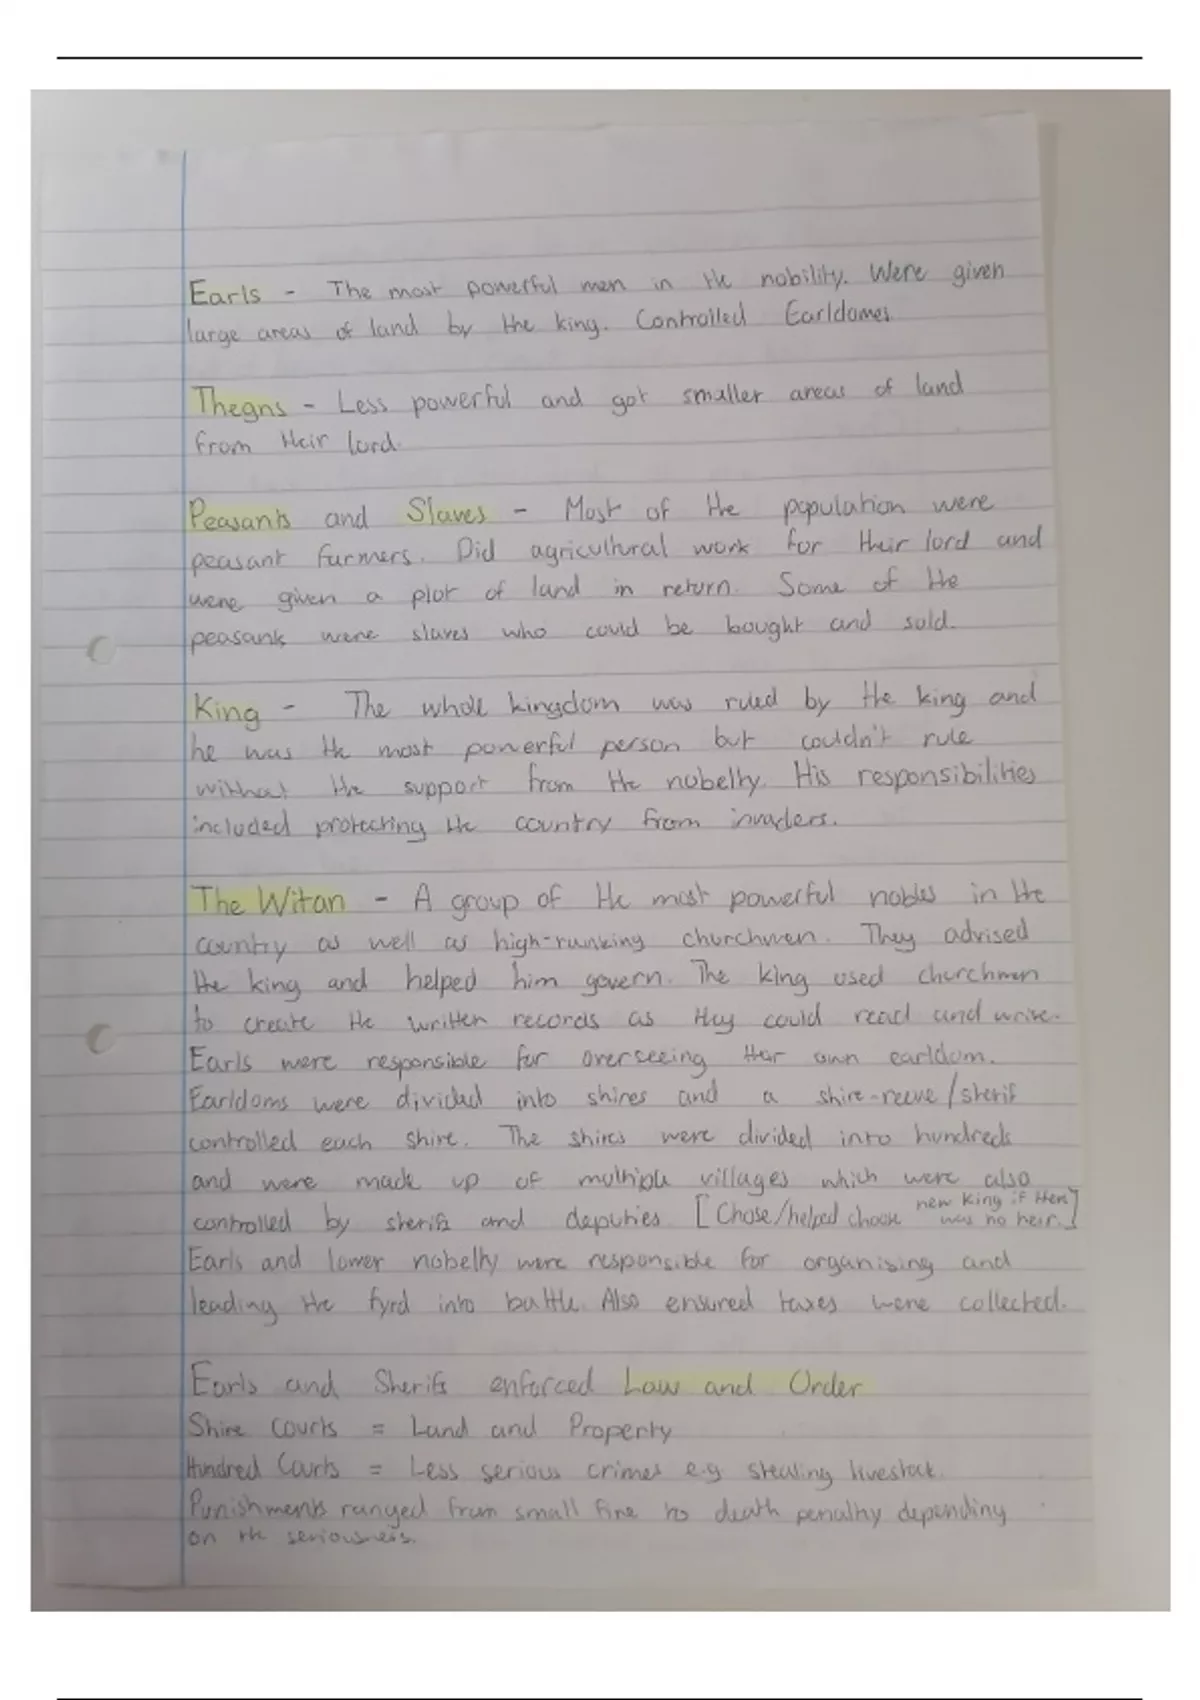 Earls - The most powerful men in the nobility. Were given
large areas of land by the king. Controlled Earldomes
Thegns - Less powerful and got smaller areas of land
from their lord.
Peasants and Slaves - Most of the population were
peasant farmers. Did agricultural work for their lord and
were given a plot of land in return. Some of the
peasants were slaves who could be bought and sold.
King - The whole kingdom was ruled by the king and
he was the most powerful person but couldn't rule
without the support from the nobelty. His responsibilities
included protecting the country from invaders.
The Witan - A group of the most powerful nobles in the
country as well as high-ranking churchmen. They advised
the king and helped him govern. The king used churchmen
to create the written records as they could read and write.
Earls were responsible for overseeing their own earldom.
Earldoms were divided into shires and a shire-reeve/sherif
controlled each shire. The shires were divided into hundreds
and were made up of multiple villages which were also
controlled by sherifs and deputies. [Chose/helped choose new king if there was no heir.]
Earls and lower nobelty were responsible for organising and
leading the fyrd into battle. Also ensured taxes were collected.
Earls and Sherifs enforced Law and Order
Shire Courts = Land and Property
Hundred Courts = Less serious crimes e.g. stealing livestock.
Punishments ranged from small fine to death penalty depending
on the seriousness.